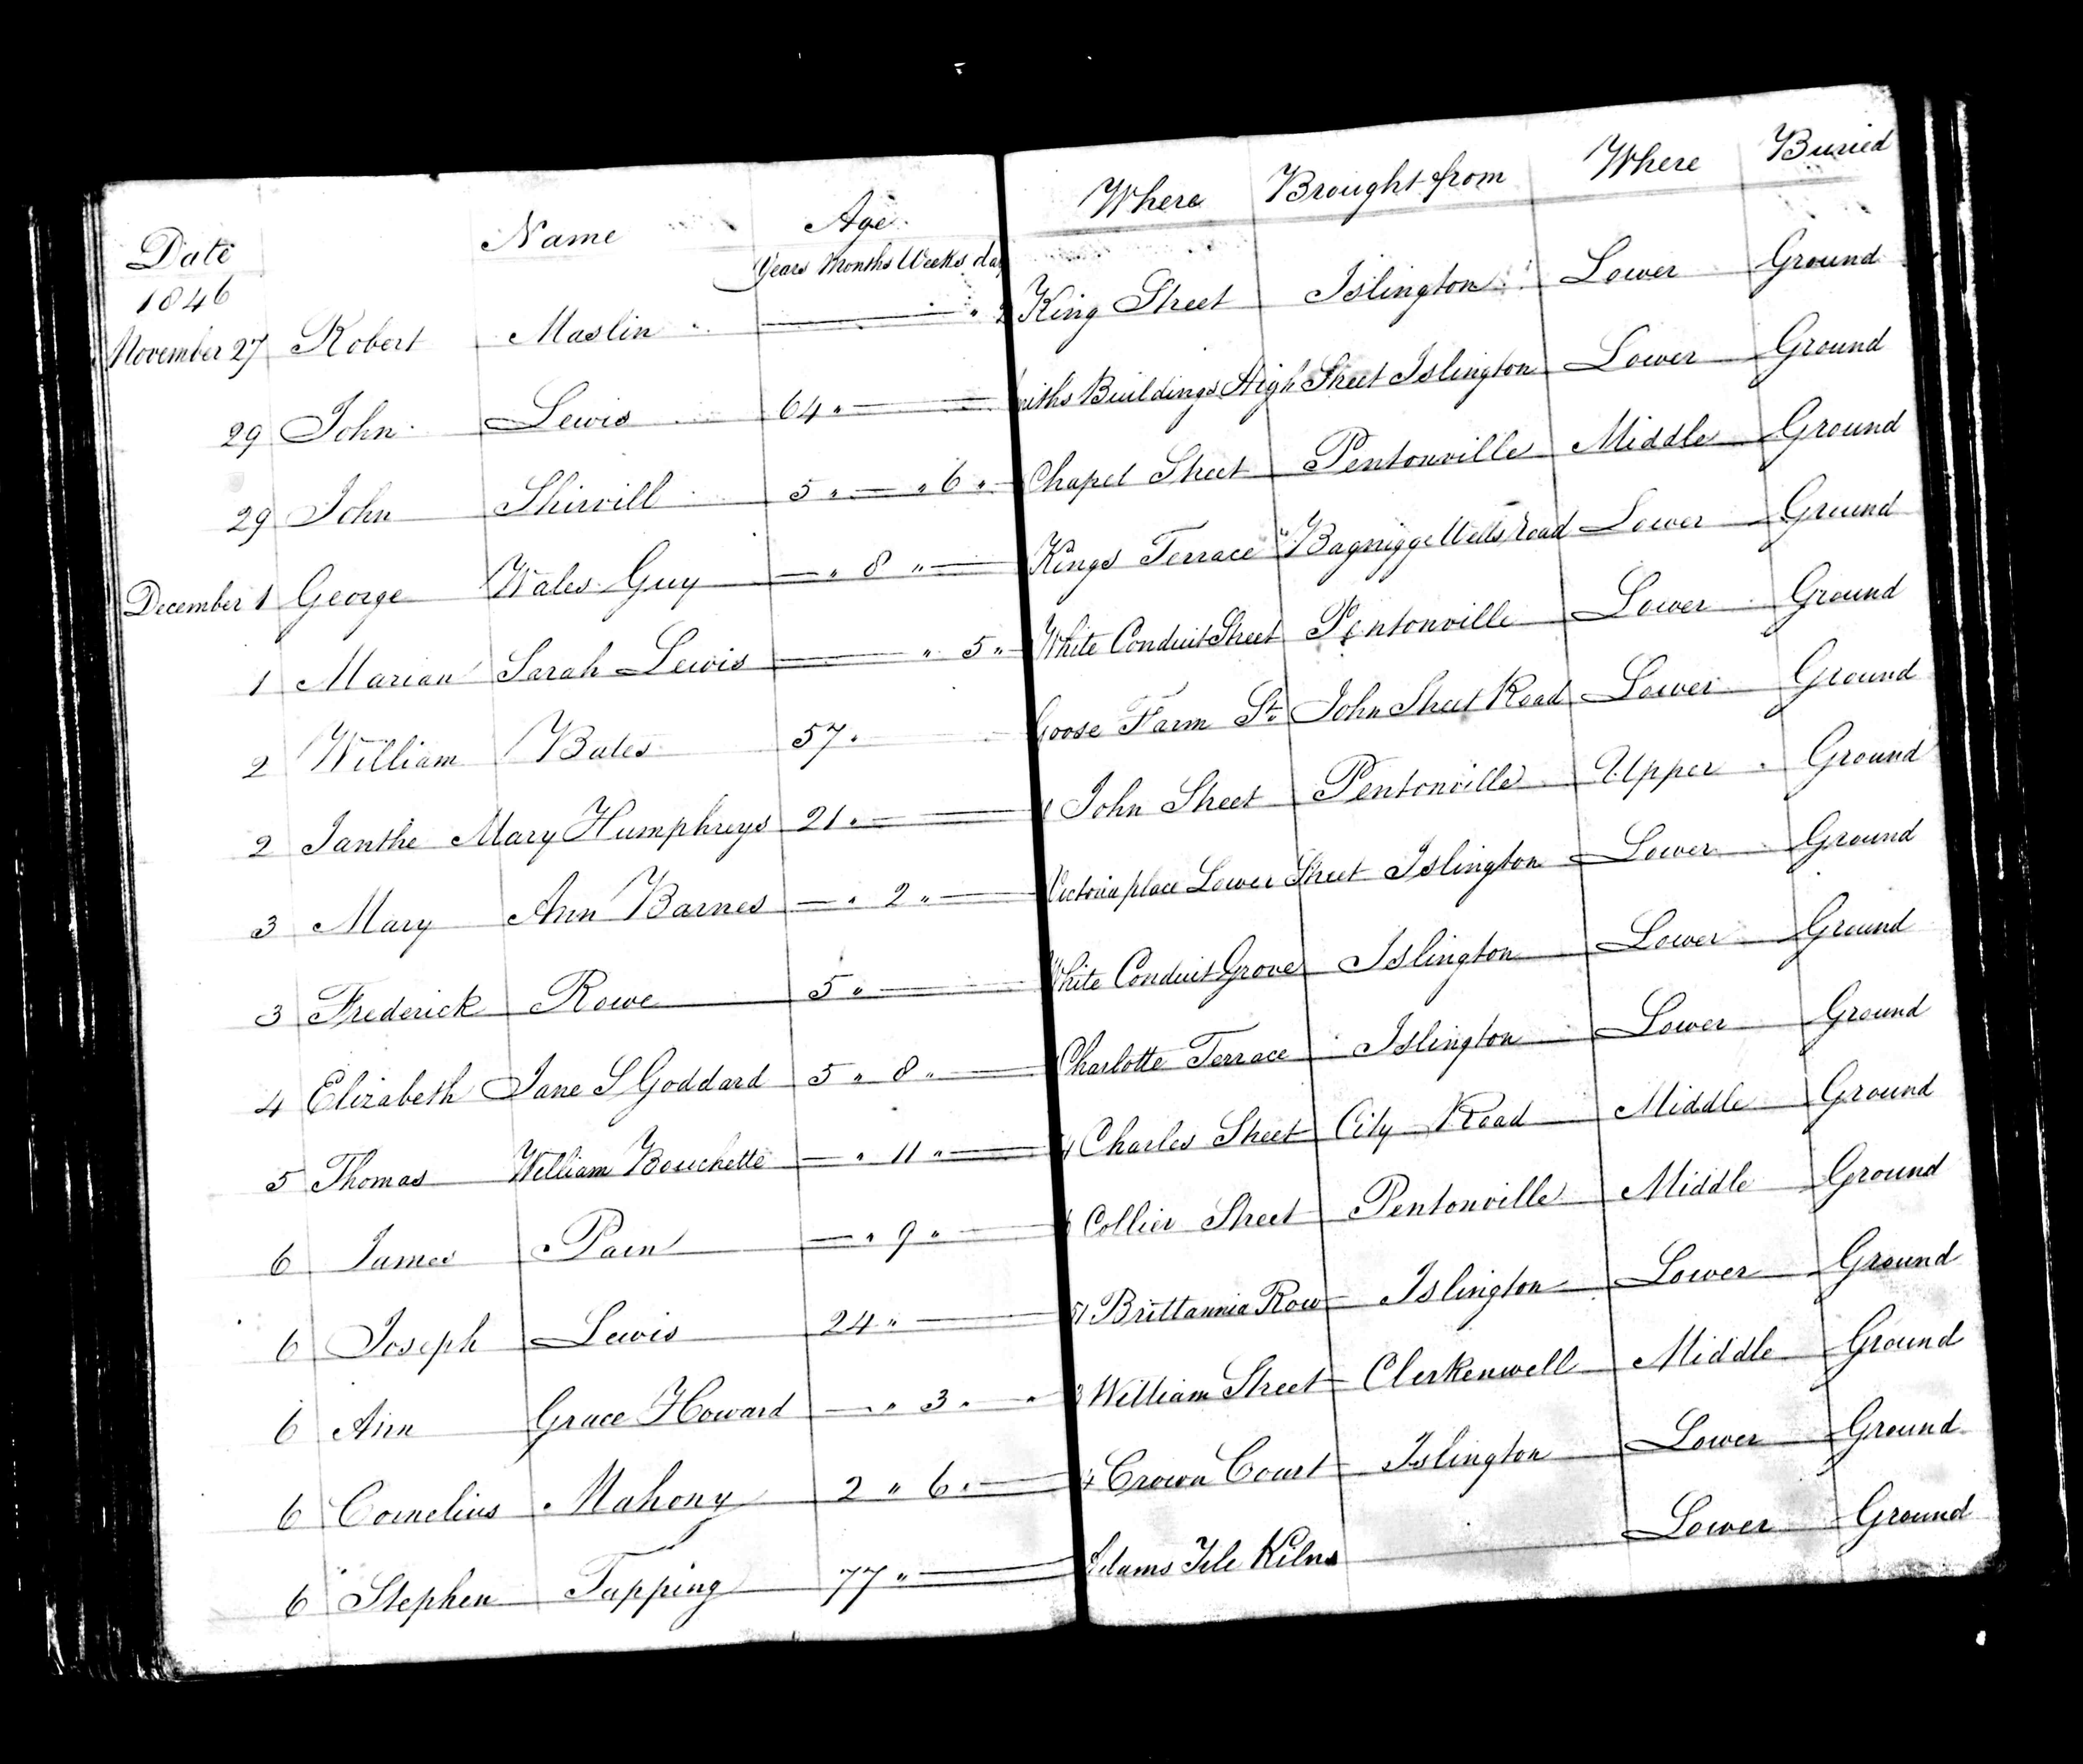 Date Name Age Where Brought from Where Buried
1846 Years Months Weeks da
November 27 Robert Maslin — " King Street Islington Lower Ground
29 John Lewis 64 " — iths Buildings High Street Islington Lower Ground
29 John Shirvill 5 " — " 6 " — Chapel Street Pentonville Middle Ground
December 1 George Wales Guy — " 8 " — Kings Terrace "Bagnigge Wells Road Lower Ground
1 Marian Sarah Lewis — " 5 " — White Conduit Street Pentonville Lower Ground
2 William Bates 57 " Goose Farm St. John Street Road Lower Ground
2 Ianthe Mary Humphreys 21 " — John Street Pentonville Upper Ground
3 Mary Ann Barnes — " 2 " — Victoria place Lower Street Islington Lower Ground
3 Frederick Rowe 5 " — White Conduit Grove Islington Lower Ground
4 Elizabeth Jane S Goddard 5 " 8 " — Charlotte Terrace Islington Lower Ground
5 Thomas William Bouchette — " 11 " — Charles Street City Road Middle Ground
6 James Pain — " 9 " — Collier Street Pentonville Middle Ground
6 Joseph Lewis 24 " — 51 Brittannia Row Islington Lower Ground
6 Ann Grace Howard — " 3 " — " William Street Clerkenwell Middle Ground
6 Cornelius Mahony 2 " 6 " — 4 Crown Court Islington Lower Ground
6 Stephen Tapping 77 " — Adams Tile Kilns Lower Ground